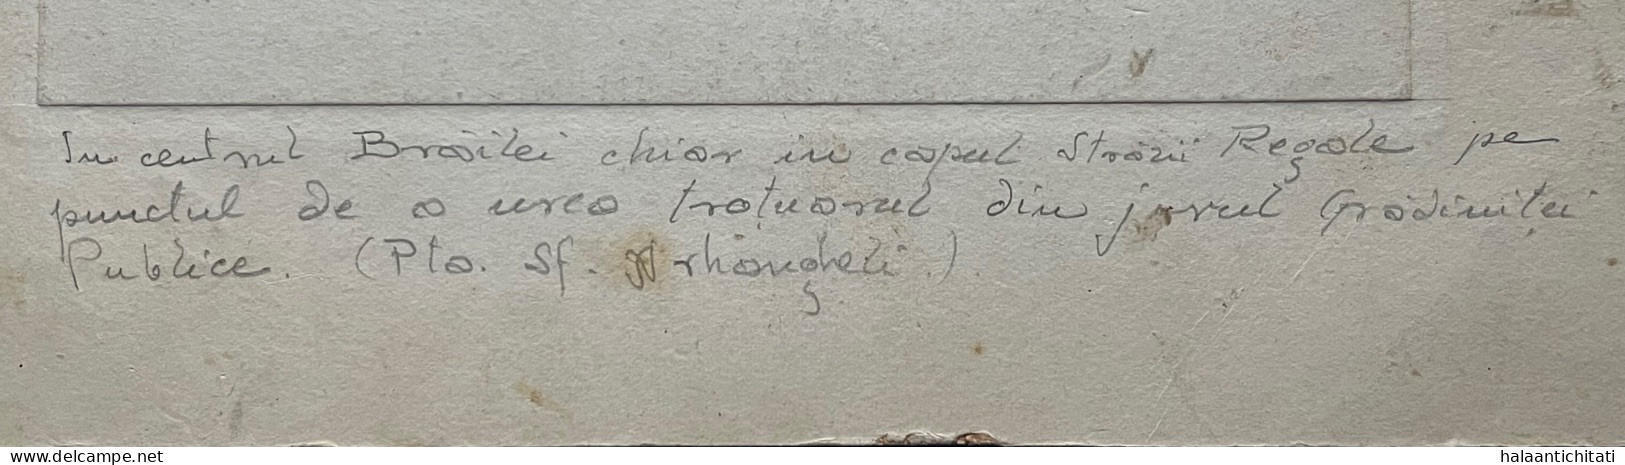 In centrul Brăilei chiar in capul Străzii Regale pe
punctul de a urca trotuarul din jurul Grădiniței
Publice. (Pta. Sf. Arhangheli.)
www.delcampe.net
halaantichitati